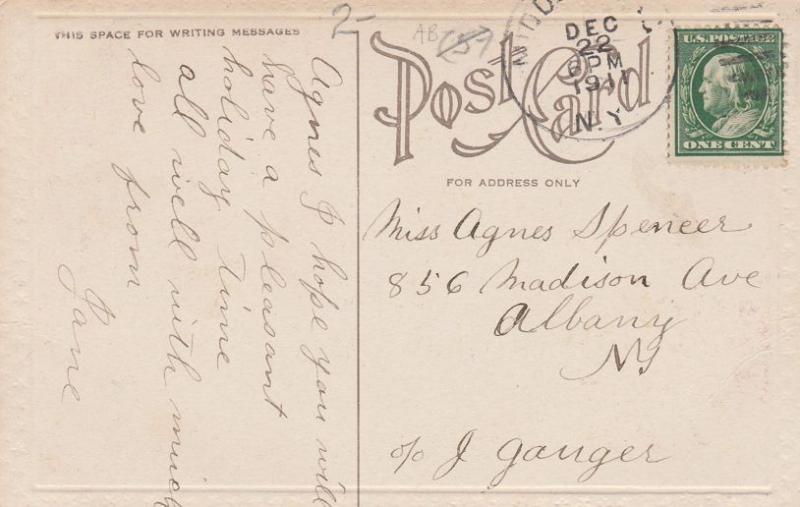 THIS SPACE FOR WRITING MESSAGES
2-
AB
Agnes I hope you will
have a pleasant
holiday time
all well with much
love from
Jane
Post Card
DEC
22
6 PM
1911
N.Y.
U.S. POSTAGE
ONE CENT
FOR ADDRESS ONLY
Miss Agnes Spencer
856 Madison Ave
Albany
NY
c/o J Ganger